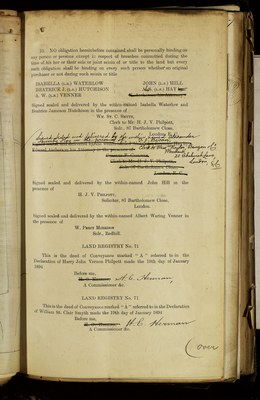 15. NO obligation hereinbefore contained shall be personally binding on
any person or persons except in respect of breaches committed during the
time of his her or their sole or joint seisin of or title to the land but every
such obligation shall be binding on every such person whether an original
purchaser or not during such seisin or title
ISABELLA (L.S.) WATERLOW JOHN (L.S.) HILL
BEATRICE J. (L.S.) HUTCHISON
A. W. (L.S.) VENNER
Signed sealed and delivered by the within-named Isabella Waterlow and
Beatrice Jamieson Hutchison in the presence of
Wm. St. C. Smyth,
Clerk to Mr. H. J. V. Philpott,
Solr., 67 Bartholomew Close,
Signed sealed and delivered by
in the presence of
London E.C.
Signed sealed and delivered by the within-named John Hill in the
presence of
H. J. V. Philpott,
Solicitor, 67 Bartholomew Close,
London
Signed sealed and delivered by the within-named Albert Waring Venner in
the presence of
W. Percy Morrison
Solr., Redhill.
LAND REGISTRY No. 71
This is the deed of Conveyance marked "A" referred to in the
Declaration of Harry John Verrom Philpott made the 19th day of January
1894
Before me,
H. C. Herman
A Commissioner &c.
LAND REGISTRY No. 71
This is the deed of Conveyance marked "A" referred to in the Declaration
of William St. Clair Smyth made the 19th day of January 1894
Before me,
H. C. Herman
A Commissioner &c.
(over